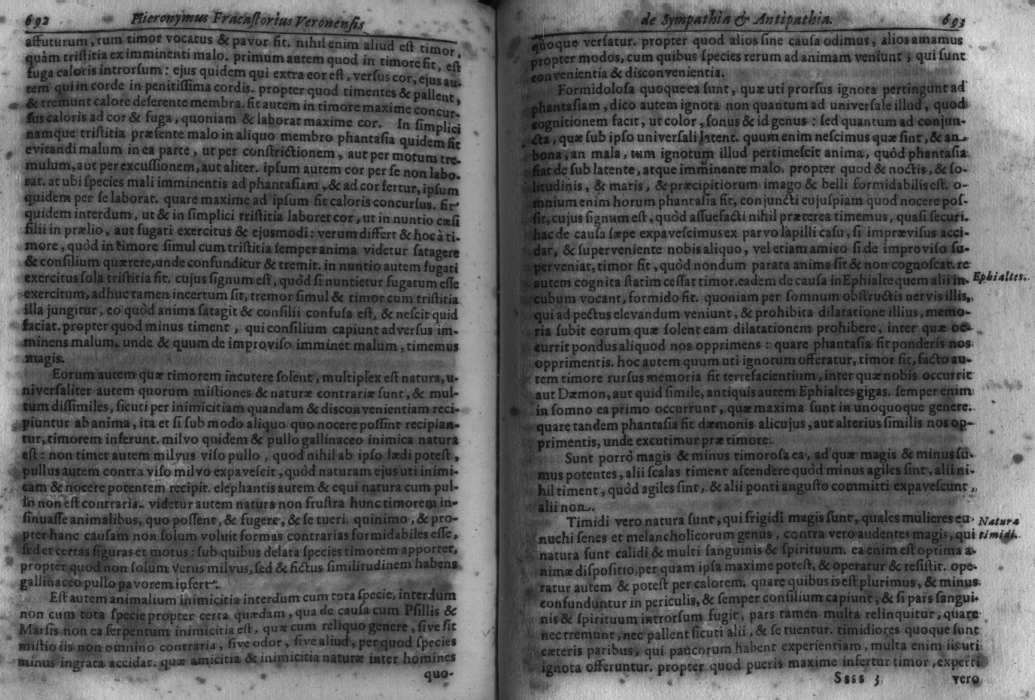 692 Hieronymus Fracastorius Veronensis
affuturum, tum timor vocatus & pavor fit. nihil enim aliud est timor,
quàm tristitia ex imminenti malo. primum autem quod in timore fit, est
fuga caloris introrsum: ejus quidem qui extra cor est, versus cor, ejus au-
tem qui in corde in penitissima cordis. propter quod timentes & pallent,
& tremunt calore deserente membra. fit autem in timore maxime concur-
sus caloris ad cor & fuga, quoniam & laborat maxime cor. In simplici
namque tristitia præsente malo in aliquo membro phantasia quidem fit
evitandi malum in ea parte, ut per constrictionem, aut per motum tre-
mulum, aut per excussionem, aut aliter. ipsum autem cor per se non labo-
rat. at ubi species mali imminentis ad phantasiam, & ad cor fertur, ipsum
quidem per se laborat. quare maxime ad ipsum fit caloris concursus. fit
quidem interdum, ut & in simplici tristitia laboret cor, ut in nuntio cæsi
filii in prælio, aut fugati exercitus & ejusmodi: verum differt & hoc à ti-
more, quòd in timore simul cum tristitia semper anima videtur satagere
& consilium quærere, unde confunditur & tremit. in nuntio autem fugati
exercitus sola tristitia fit. cujus signum est, quòd si nuntietur fugatum esse
exercitum, adhuc tamen incertum sit, tremor simul & timor cum tristitia
illa jungitur, eo quòd anima satagit & consilii confusa est, & nescit quid
faciat. propter quod minus timent, qui consilium capiunt adversus im-
minens malum. unde & quum de improviso imminet malum, timemus
magis.
Eorum autem quæ timorem incutere solent, multiplex est natura, u-
niversaliter autem quorum mistiones & naturæ contrariæ sunt, & mul-
tum dissimiles, sicuti per inimicitiam quandam & disconvenientiam reci-
piuntur ab anima, ita et si sub modo aliquo quo nocere possint recipian-
tur, timorem inferunt. milvo quidem & pullo gallinaceo inimica natura
est: non timet autem milvus viso pullo, quod nihil ab ipso lædi potest,
pullus autem contra viso milvo expavescit, quòd naturam ejus uti inimi-
cam & nocere potentem recipit. elephantis autem & equi natura cum pul-
lo non est contraria. videtur autem natura non frustra hunc timorem in-
sinuasse animalibus, quo possent, & fugere, & se tueri. quinimo, & pro-
pter hanc causam non solum voluit formas contrarias formidabiles esse,
sed et certas figuras et motus: sub quibus delata species timorem apportet,
propter quod non solum verus milvus, sed & fictus similitudinem habens
gallinaceo pullo pavorem infert.
Est autem animalium inimicitia interdum cum tota specie, interdum
non cum tota specie propter certa quædam, qua de causa cum Psillis &
Marsis non ea serpentum inimicitia est, quæ cum reliquo genere, sive sit
mistio iis non omnino contraria, sive odor, sive aliud, per quod species
minus ingrata accidat. quæ amicitia & inimicitia naturæ inter homines
quo-
de Sympathia & Antipathia. 693
quoque versatur. propter quod alios sine causa odimus, alios amamus
propter modos, cum quibus species rerum ad animam veniunt, qui sunt
convenientia & disconvenientia.
Formidolosa quoque ea sunt, quæ uti prorsus ignota pertingunt ad
phantasiam, dico autem ignota non quantum ad universale illud, quod
cognitionem facit, ut color, sonus & id genus: sed quantum ad conjun-
cta, quæ sub ipso universali latent. quum enim nescimus quæ sint, & an
bona, an mala, tum ignotum illud pertimescit anima, quòd phantasia
fiat de sub latente, atque imminente malo. propter quod & noctis, & so-
litudinis, & maris, & præcipitiorum imago & belli formidabilis est. o-
mnium enim horum phantasia fit, conjuncti cujuspiam quod nocere pos-
sit, cujus signum est, quòd assuefacti nihil præterea timemus, quasi securi.
hac de causa sæpe expavescimus ex parvo lapilli casu, si improvisus acci-
dat, & superveniente nobis aliquo, vel etiam amico si de improviso su-
perveniat, timor fit, quòd nondum parata anima sit & non cognoscat. re
autem cognita statim cessat timor. eadem de causa in Ephialte quem alii in-
Ephialtes.
cubum vocant, formido fit. quoniam per somnum obstructis nervis illis,
qui ad pectus elevandum veniunt, & prohibita dilatatione illius, memo-
ria subit eorum quæ solent eam dilatationem prohibere, inter quæ oc-
currit pondus aliquod nos opprimens: quare phantasia fit ponderis nos
opprimentis. hoc autem quum uti ignotum offeratur, timor fit, facto au-
tem timore rursus memoria fit terrefacientium, inter quæ nobis occurrit
aut Dæmon, aut quid simile, antiquis autem Ephialtes gigas. semper enim
in somno ea primo occurrunt, quæ maxima sunt in unoquoque genere:
quare tandem phantasia fit dæmonis alicujus, aut alterius similis nos op-
primentis, unde excutimur præ timore.
Sunt porrò magis & minus timorosa ea, ad quæ magis & minus su-
mus potentes, alii scalas timent ascendere quòd minus agiles sint, alii ni-
hil timent, quòd agiles sint, & alii ponti angusto committi expavescunt,
alii non.
Timidi vero natura sunt, qui frigidi magis sunt, quales mulieres eu-
Natura
timidi.
nuchi senes et melancholicorum genus, contra vero audentes magis, qui
natura sunt calidi & multi sanguinis & spirituum. ea enim est optima a-
nimæ dispositio, per quam ipsa maxime potest, & operatur & resistit. ope-
ratur autem & potest per calorem. quare quibus is est plurimus, & minus
confunduntur in periculis, & semper consilium capiunt, & si pars sangui-
nis & spirituum introrsum fugit, pars tamen multa relinquitur, quare
nec tremunt, nec pallent sicuti alii, & se tuentur. timidiores quoque sunt
cæteris paribus, qui paucorum habent experientiam, multa enim iis uti
ignota offeruntur. propter quod pueris maxime infertur timor, experti
Ssss 3 vero